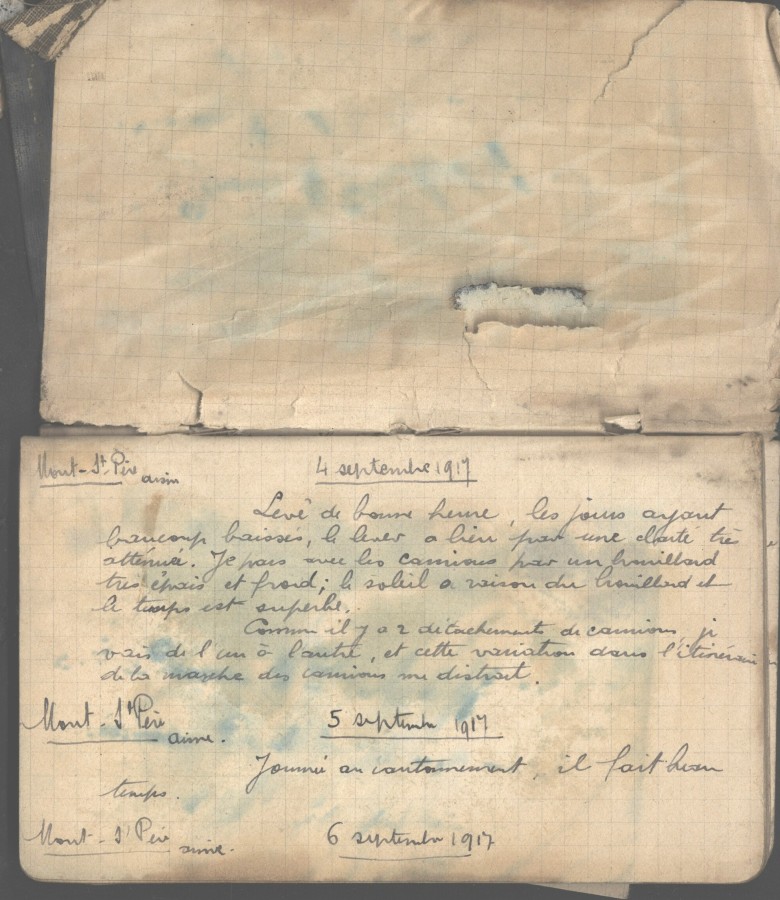 Mont-St-Père aisne 4 septembre 1917
Levé de bonne heure, les jours ayant
beaucoup baissés, le lever a lieu par une clarté très
atténuée. Je pars avec les camions par un brouillard
très épais et froid ; le soleil a raison du brouillard et
le temps est superbe.
Comme il y a 2 détachements de camions, je
vais de l'un à l'autre, et cette variation dans l'itinéraire
de la marche des camions me distrait.
Mont-St Père aisne. 5 septembre 1917
Journée au cantonnement, il fait beau
temps.
Mont-St Père aisne. 6 septembre 1917